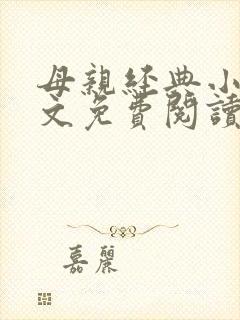 母親經典小
文免費閱讀
嘉麗